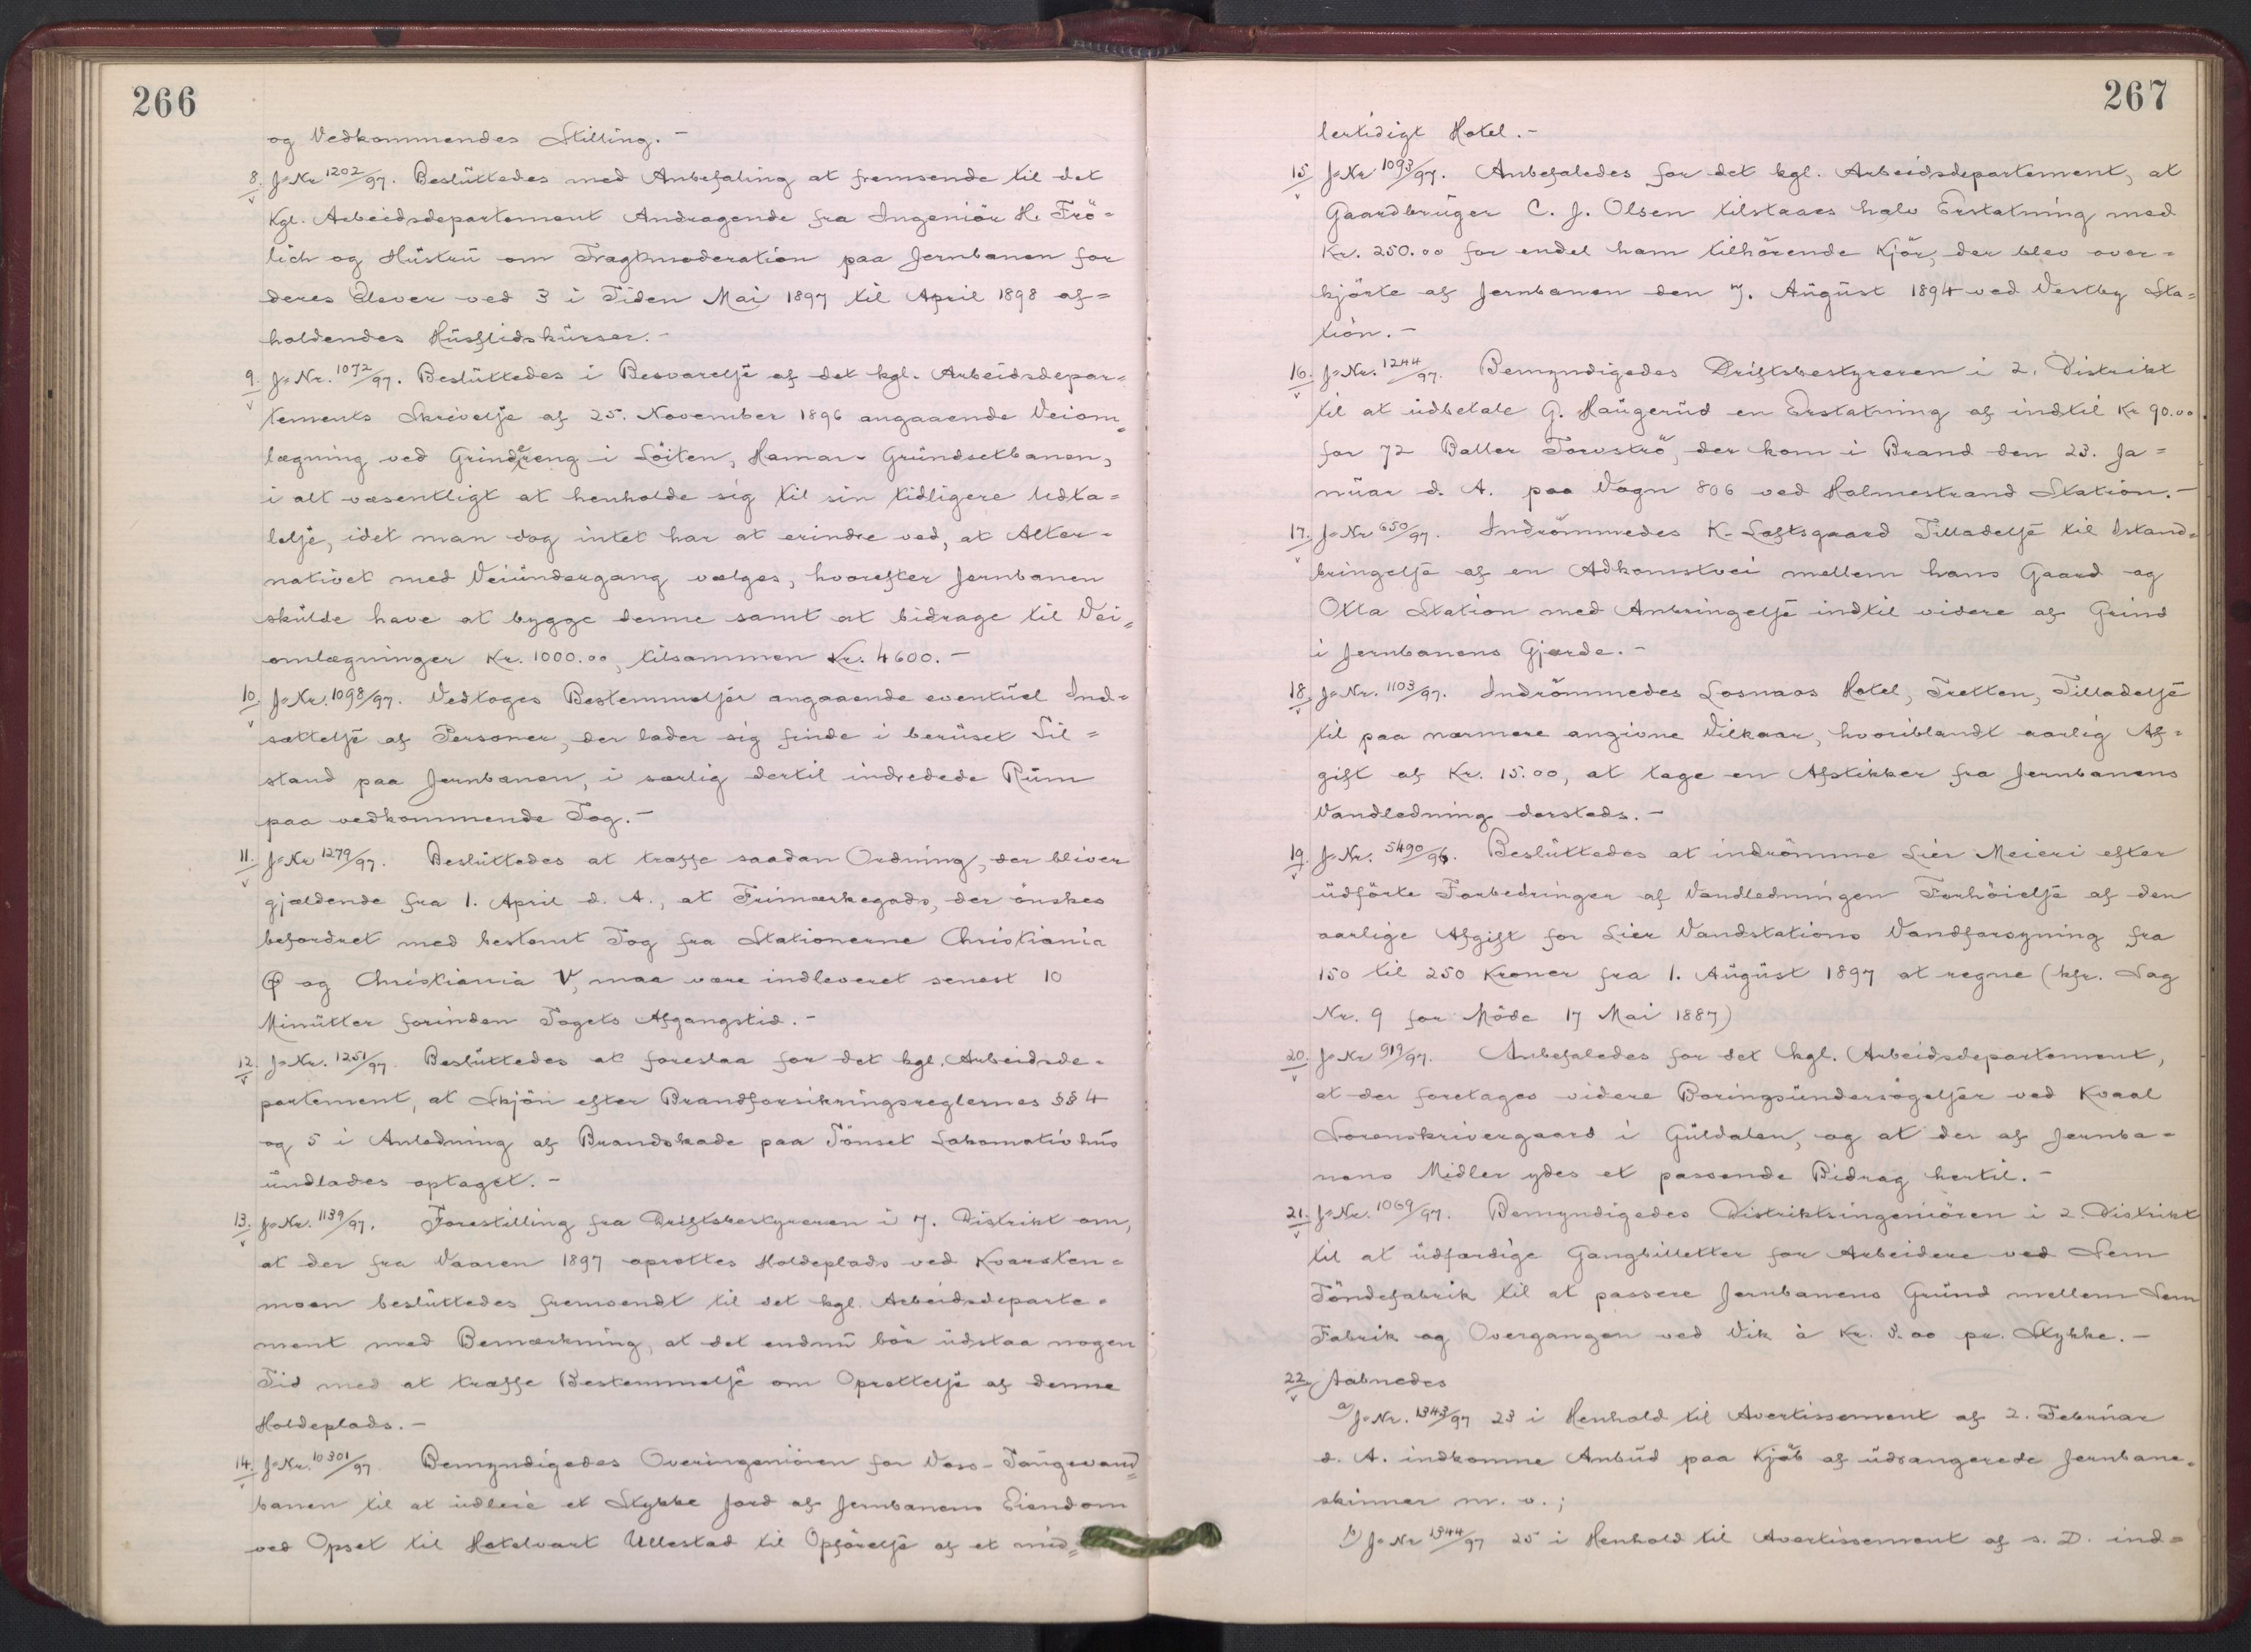 266
og Vedkommendes Stilling. –
8. J=Nr 1202/97. Beslüttedes med Anbefaling at fremsende til det
Kgl. Arbeidsdepartement Andragende fra Ingeniör H. Frö=
lich og Hüstrü om Fragtmoderation paa Jernbanen for
deres Elever ved 3 i Tiden Mai 1897 til April 1898 af=
holdendes Hüsflidskürser. –
9. J=Nr. 1072/97. Beslüttedes i Besvarelse af det kgl. Arbeidsdepar=
tements Skrivelse af 25. November 1896 angaaende Veiom=
lægning ved Grindereng i Löiten, Hamar-Gründsetbanen,
i alt væsentligt at henholde sig til sin tidligere Udta=
lelse, idet man dog intet har at erindre ved, at Alter=
nativet med Veiündergang vælges, hvorefter Jernbanen
skülde have at bygge denne samt at bidrage til Vei=
omlægninger Kr. 1000.00, tilsammen Kr. 4600. –
10. J=Nr. 1098/97. Vedtoges Bestemmelser angaaende eventüel Ind=
sættelse af Personer, der lader sig finde i berüset Til=
stand paa Jernbanen, i særlig dertil indredede Rüm
paa vedkommende Tog. –
11. J=Nr 1279/97. Beslüttedes at træffe saadan Ordning, der bliver
gjældende fra 1. April d. A., at Frimærkegods, der önskes
befordret med bestemt Tog fra Stationerne Christiania
Ø og Christiania V, maa være indleveret senest 10
Minütter forinden Togets Afgangstid. –
12. J=Nr. 1251/97. Beslüttedes at foreslaa for det kgl. Arbeidsde=
partement, at Skjön efter Brandforsikringsreglernes §§ 4
og 5 i Anledning af Brandskade paa Tönset Lokomotivhüs
ündlades optaget. –
13. J=Nr. 1139/97. Forestilling fra Driftsbestyreren i 7. Distrikt om,
at der fra Vaaren 1897 oprettes Holdeplads ved Kvarsten=
moen beslüttedes fremsendt til det kgl. Arbeidsdeparte=
ment med Bemærkning, at det endnü bör üdstaa nogen
Tid med at træffe Bestemmelse om Oprettelse af denne
Holdeplads. –
14. J=Nr. 10301/97. Bemyndigedes Overingeniören for Voss-Taugevand=
banen til at üdleie et Stykke Jord af Jernbanens Eiendom
ved Opset til Hotelvært Ullestad til Opförelse af et mid=
267
lertidigt Hotel. –
15. J=Nr 1093/97. Anbefaledes for det kgl. Arbeidsdepartement, at
Gaardbrüger C. J. Olsen tilstaaes halv Erstatning med
Kr. 250.00 for endel ham tilhörende Kjör, der blev over=
kjörte af Jernbanen den 7. Aügüst 1894 ved Vestby Sta=
tion. –
16. J=Nr. 1244/97. Bemyndigedes Driftsbestyreren i 2. Distrikt
til at üdbetale G. Haügerüd en Erstatning af indtil Kr 90.00
for 72 Baller Torvströ, der kom i Brand den 23. Ja=
nüar d. A. paa Vogn 806 ved Holmestrand Station. –
17. J=Nr 650/97. Indrömmedes K. Loftsgaard Tilladelse til Istand=
bringelse af en Adkomstvei mellem hans Gaard og
Otta Station med Anbringelse indtil videre af Grind
i Jernbanens Gjærde. –
18. J=Nr. 1103/97. Indrömmedes Losnaos Hotel, Tretten, Tilladelse
til paa nærmere angivne Vilkaar, hvoriblandt aarlig Af=
gift af Kr. 15.00, at tage en Afstikker fra Jernbanens
Vandledning dersteds. –
19. J=Nr. 5490/96. Beslüttedes at indrömme Lier Meieri efter
üdförte Forbedringer af Vandledningen Forhöielse af den
aarlige Afgift for Lier Vandstations Vandforsyning fra
150 til 250 Kroner fra 1. Aügüst 1897 at regne (kfr. Sag
Nr. 9 for Möde 17 Mai 1887)
20. J=Nr 919/97. Anbefaledes for det kgl. Arbeidsdepartement,
at der foretages videre Boringsündersögelser ved Kvaal
Sorenskrivergaard i Güldalen, og at der af Jernba=
nens Midler ydes et passende Bidrag hertil. –
21. J=Nr. 1069/97. Bemyndigedes Distriktsingeniören i 2. Distrikt
til at üdfærdige Gangbilletter for Arbeidere ved Sem
Töndefabrik til at passere Jernbanens Gründ mellem Sem
Fabrik og Overgangen ved Vik à Kr. 3.00 pr. Stykke. –
22. Aabnedes
a) J=Nr. 1343/97 23 i Henhold til Avertissement af 2. Februar
d. A. indkomne Anbüd paa Kjöb af üdrangerede Jernbane=
skinner m. v.;
b) J=Nr 1344/97 25 i Henhold til Avertissement af s. D. ind=